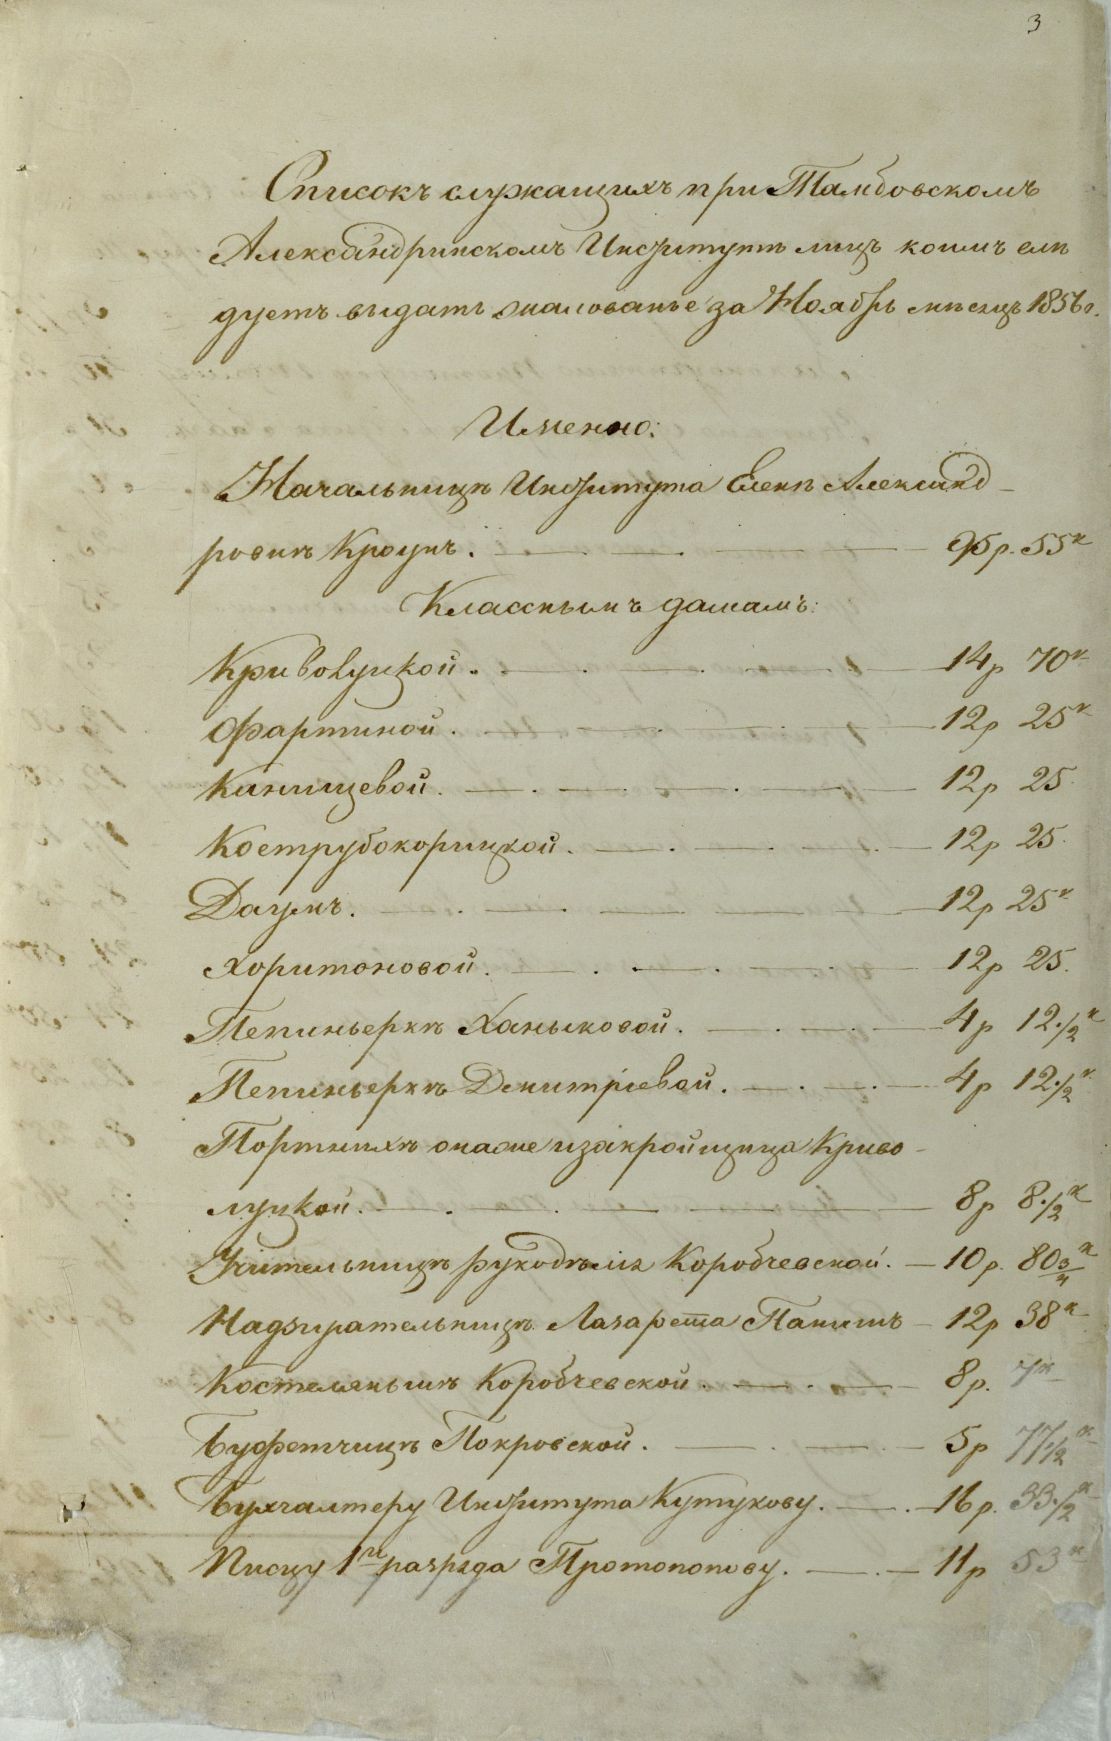 3
Списокъ служащихъ при Тамбовскомъ
Александринскомъ Институтѣ лицъ коимъ слѣ
дуетъ выдать жалованье за Ноябрь мѣсяцъ 1856 г.
Именно:
Начальницѣ Института Еленѣ Александ-
ровнѣ Кроунъ. 95 р. 55 к
Класснымъ дамамъ:
Криволуцкой. 14 р 70 к
Фартиной. 12 р 25 к
Кинищевой. 12 р 25.
Кострубокорицкой. 12 р 25.
Даумъ. 12 р 25 к
Харитоновой. 12 р 25.
Пепиньеркѣ Ханыковой. 4 р 12 1/2 к
Пепиньеркѣ Дмитріевой. 4 р 12 1/2 к
Портнихѣ онаже изакройщица Криво-
луцкой. 8 р 8 1/2 к
Учительницѣ рукодѣлія Коробчевской. 10 р. 80 3/4 к
Надзирательницѣ Лазарета Панютъ 12 р 38 к
Костелянышѣ Коробчевской. 8 р. 7 к
Буфетчицѣ Покровской. 5 р 77 1/2 к
Бухгалтеру Института Кутукову. 16 р. 33 1/2 к
Писцу 1го разряда Протопопову. 11 р 53 к